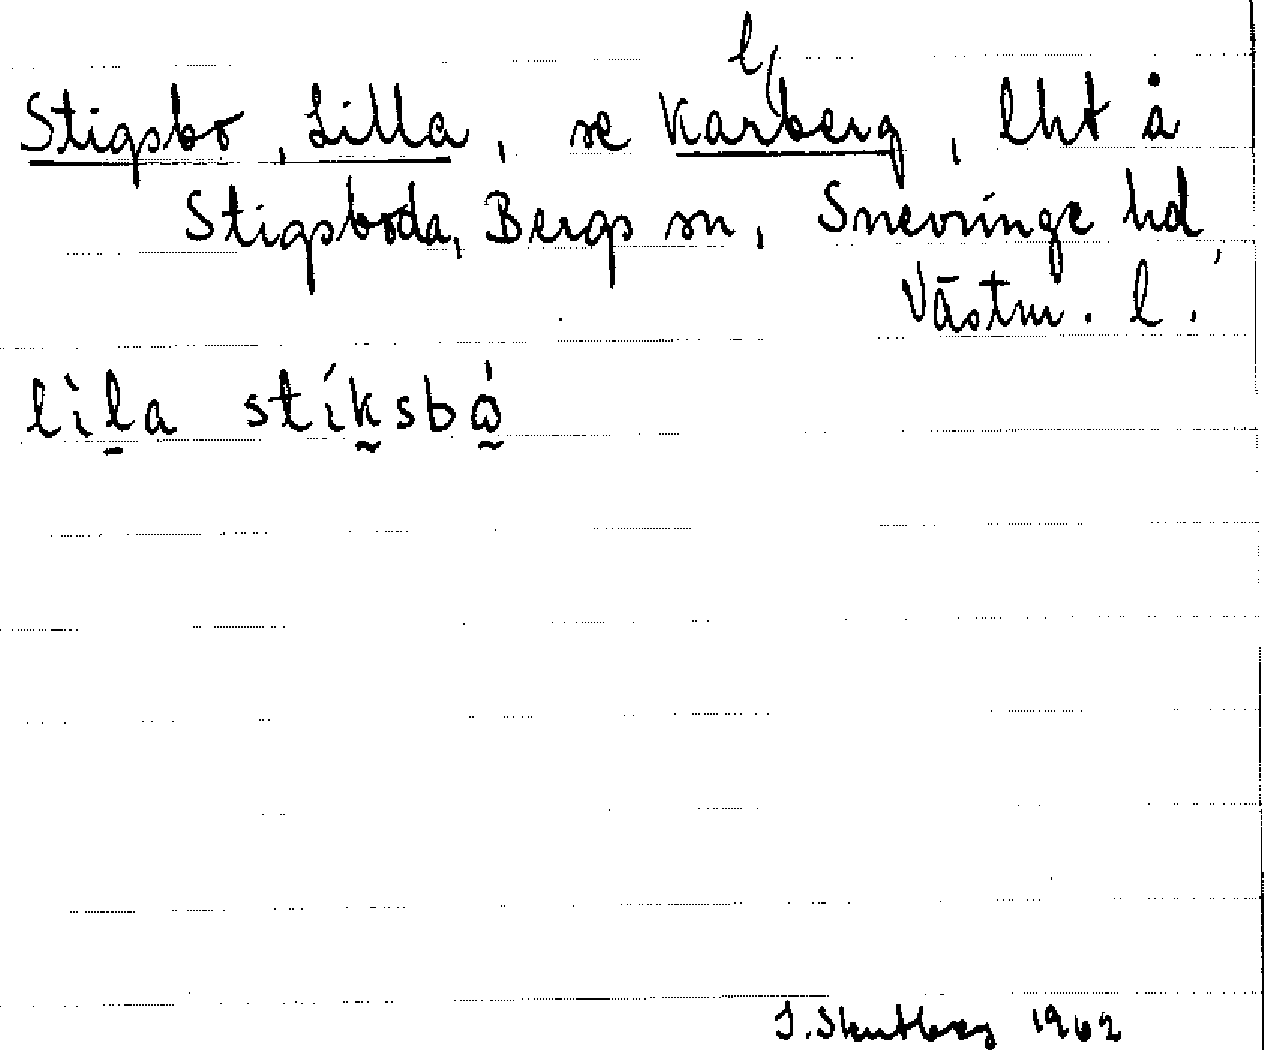 Stigsbo, Lilla, se Karlberg, lht å
Stigsboda, Bergs sn, Snevringe hd,
Västm. l.
lìla stíksbó̀
1962